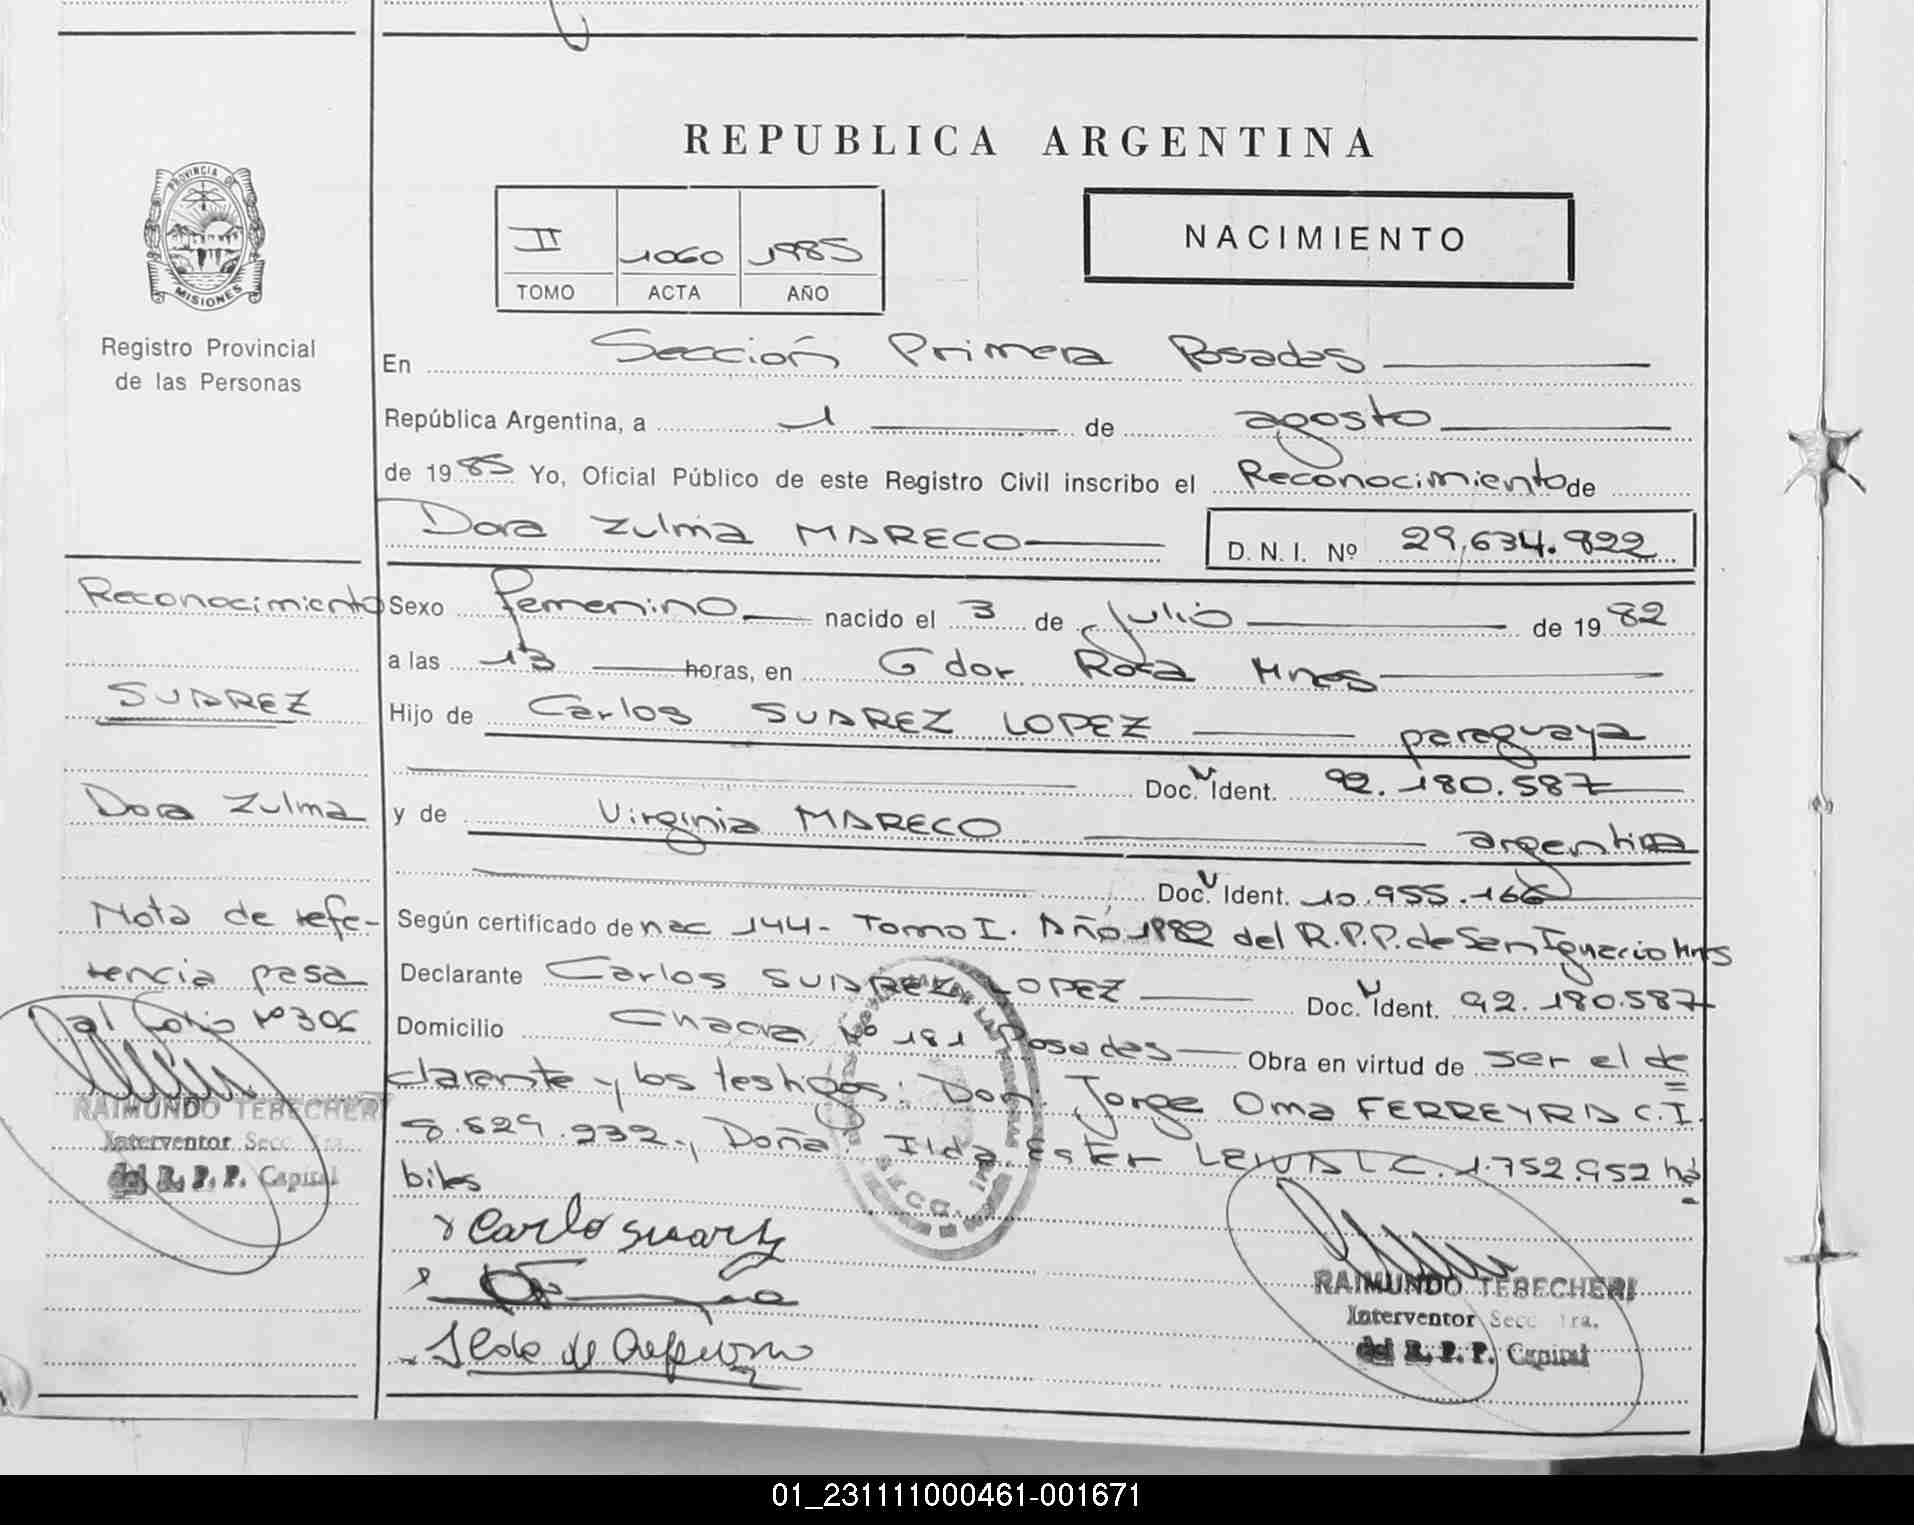 REPUBLICA ARGENTINA
PROVINCIA DE
MISIONES
Registro Provincial
de las Personas
II 1060 1985
TOMO ACTA AÑO
NACIMIENTO
En Sección Primera Posadas
República Argentina, a 1 de agosto
de 1985 Yo, Oficial Público de este Registro Civil inscribo el Reconocimiento de
Dora Zulma MARECO D.N.I. Nº 29.634.822
Reconocimiento
SUAREZ
Dora Zulma
Nota de refe-
rencia pasa
al folio Nº 306
RAIMUNDO TEBECHERI
Interventor Secc. 1ra.
del R. P. P. Capital
Sexo femenino nacido el 3 de Julio de 1982
a las 13 horas, en Gdor Roca Mnes
Hijo de Carlos SUAREZ LOPEZ paraguaya
Doc. Ident. 92.180.587
y de Virginia MARECO argentina
Doc. Ident. 10.955.166
Según certificado de nac 144- Tomo I. Año 1982 del R.P.P. de San Ignacio Mnes
Declarante Carlos SUAREZ LOPEZ Doc. Ident. 92.180.587
Domicilio Chacra Nº 181 Posadas Obra en virtud de ser el de
clarante y los testigos: Don Jorge Oma FERREYRA C.I.
8.529.232., Doña Ilda Ester C. 1.752.952 há
biles
Carlo Suarez
RAIMUNDO TEBECHERI
Interventor Secc. 1ra.
del R. P. P. Capital
01_231111000461-001671